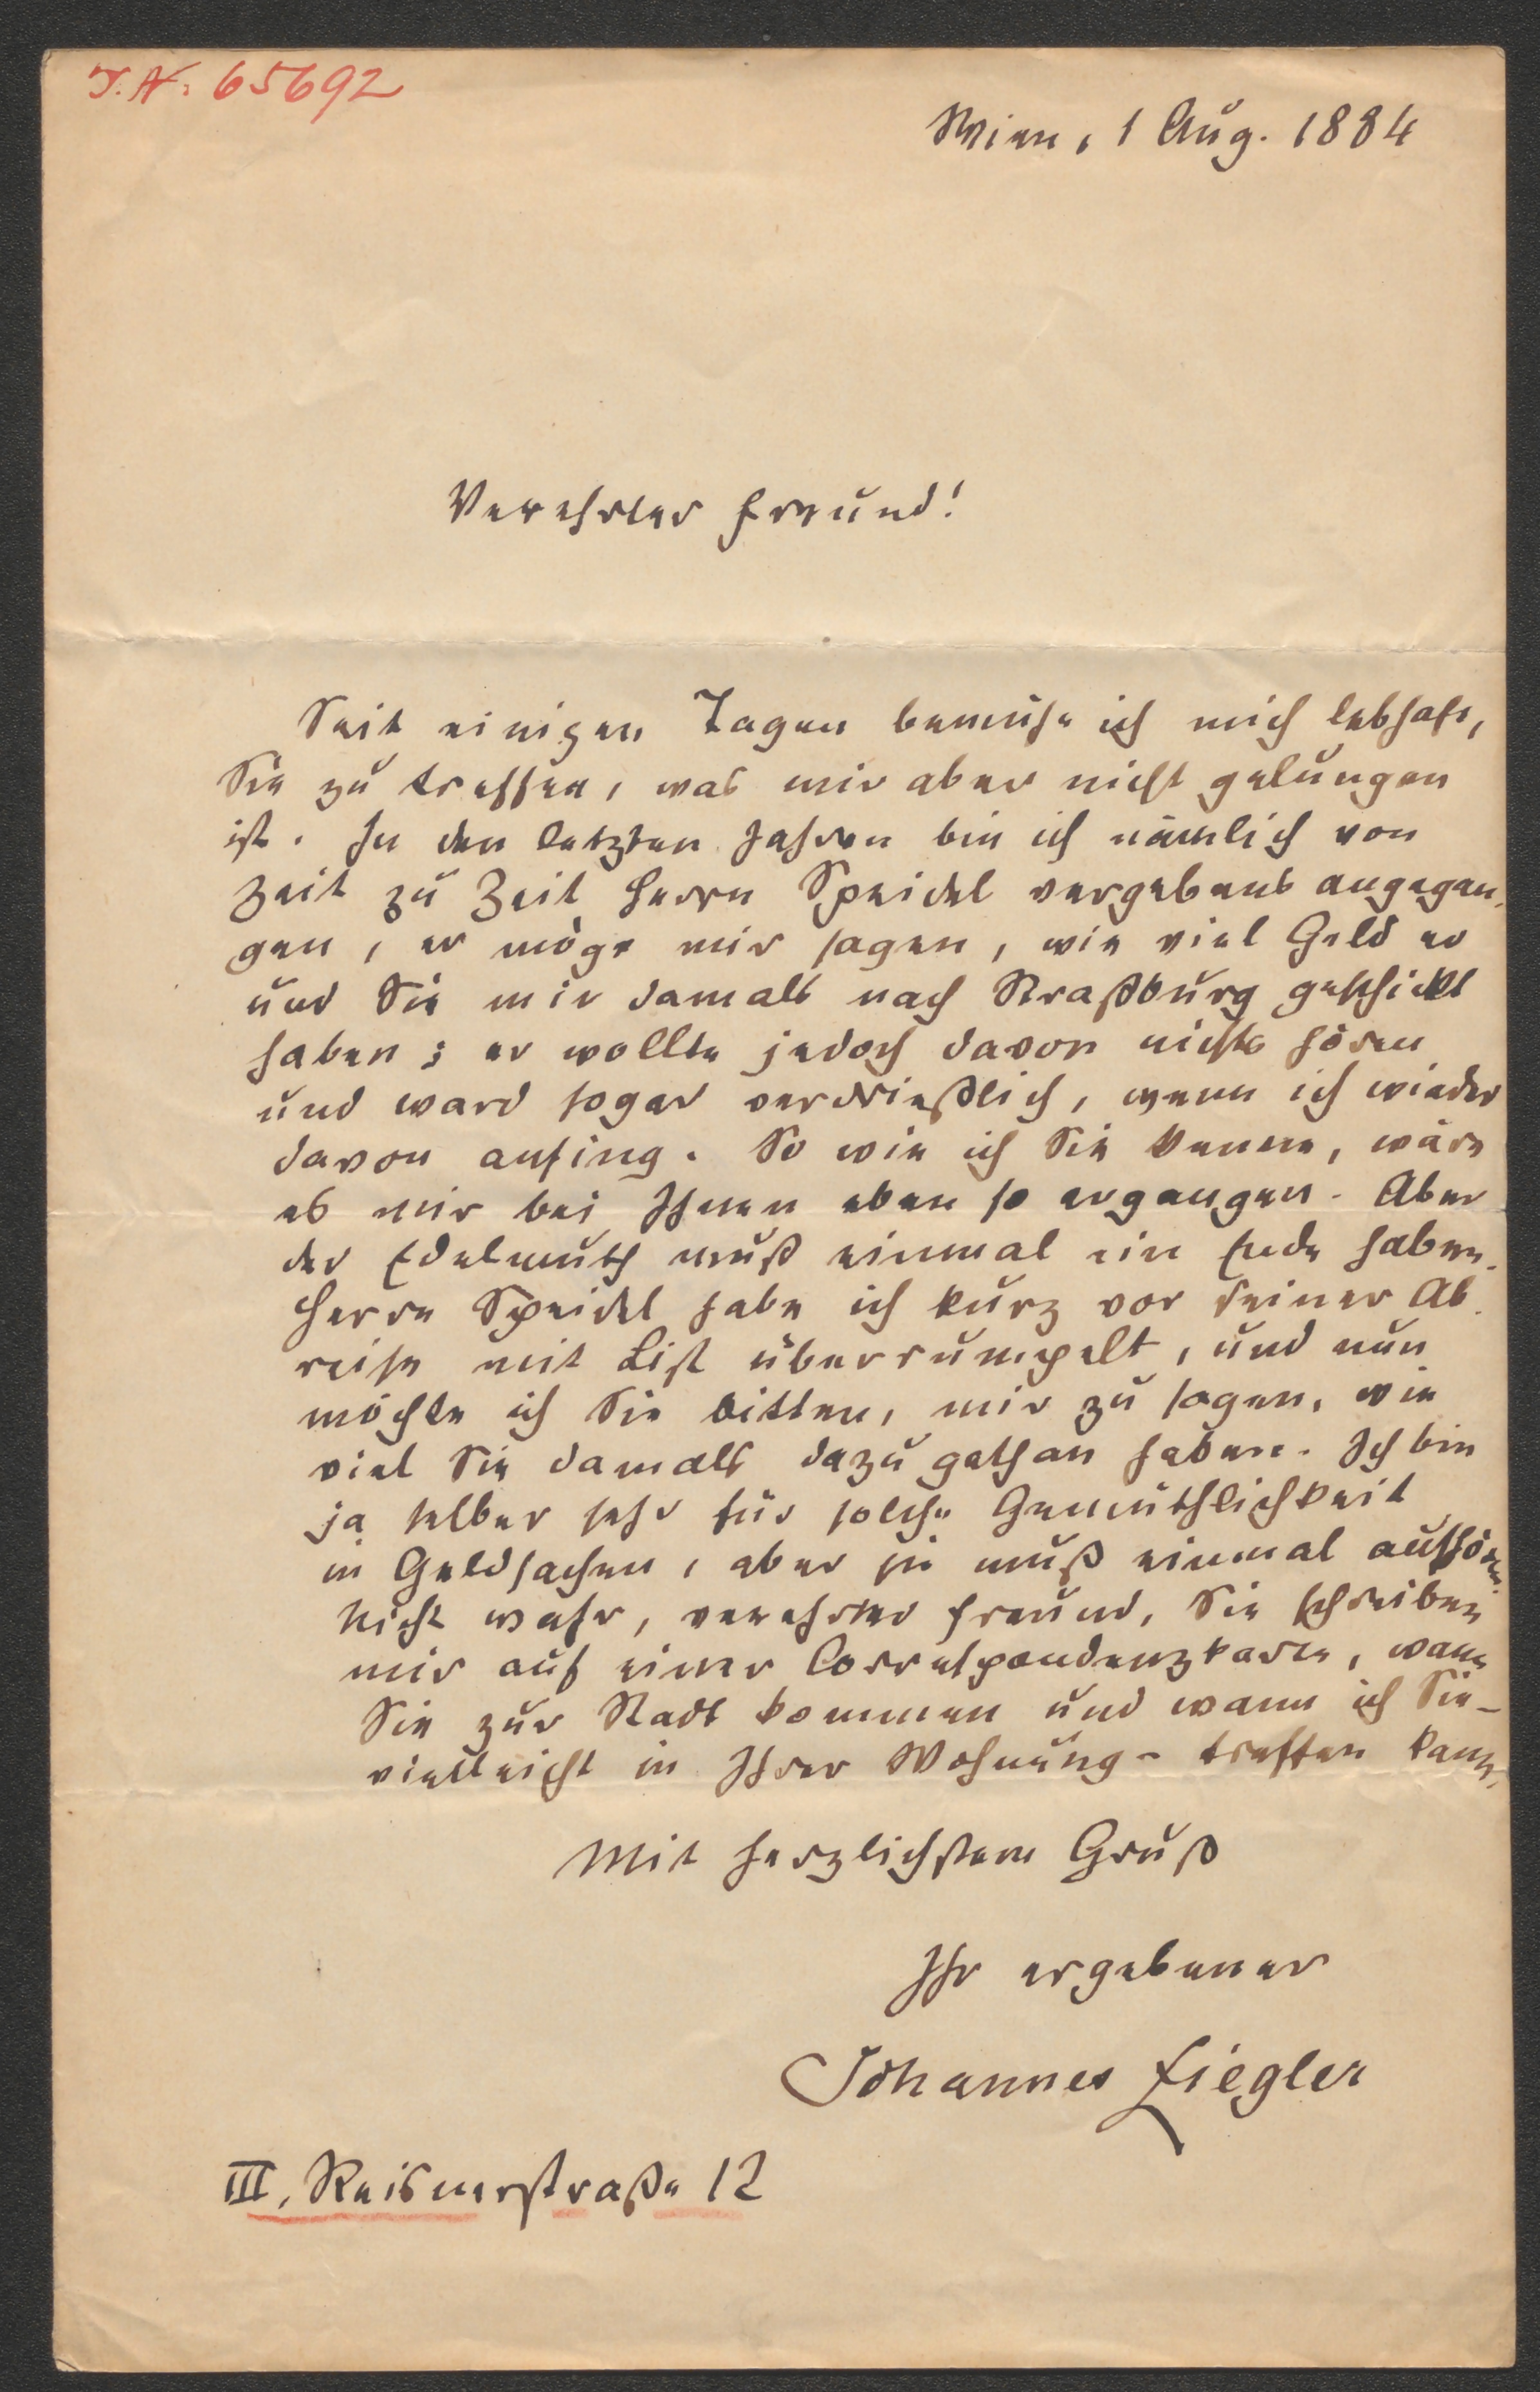 I.N. 65692
Wien, 1 Aug. 1884
Verehrter Freund!
Seit einigen Tagen bemühe ich mich lebhaft,
Sie zu treffen, was mir aber nicht gelungen
ist. In den letzten Jahren bin ich nämlich von
Zeit zu Zeit Herrn Speidel vergebens angegan-
gen, er möge mir sagen, wie viel Geld er
und Sie mir damals nach Straßburg geschickt
haben; er wollte jedoch davon nichts hören
und ward sogar verdrießlich, wenn ich wieder
davon anfing. So wie ich Sie kenne, wäre
es mir bei Ihnen eben so ergangen. Aber
der Edelmuth muß einmal ein Ende haben.
Herrn Speidel habe ich kurz vor seiner Ab-
reise mit List überrumpelt, und nun
möchte ich Sie bitten, mir zu sagen, wie
viel Sie damals dazu gethan haben. Ich bin
ja selber sehr für solche Gemüthlichkeit
in Geldsachen, aber sie muß einmal aufhören.
Nicht wahr, verehrter Freund, Sie schreiben
mir auf einer Correspondenzkarte, wann
Sie zur Stadt kommen und wann ich Sie –
vielleicht in Ihrer Wohnung – treffen kann.
Mit herzlichstem Gruß
Ihr ergebener
Johannes Ziegler
III, Reisnerstraße 12